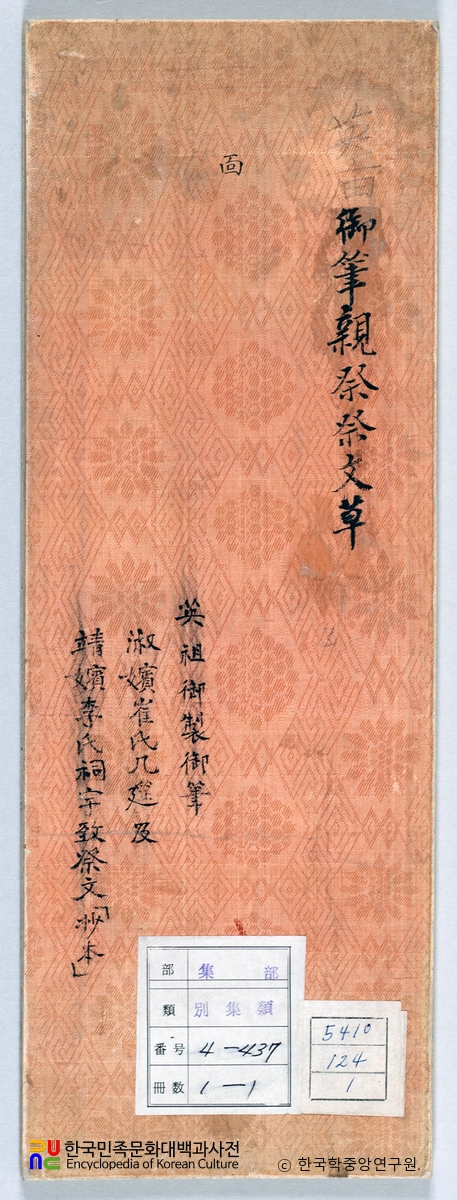 英宙御筆親祭祭文草
啚
英祖御製御筆
淑嬪崔氏几筵及
靖嬪李氏祠宇致祭文「抄本」
部 集部
類 別集類
番号 4-437
冊数 1-1
5410
124
1
한국민족문화대백과사전
Encyclopedia of Korean Culture
ⓒ 한국학중앙연구원.